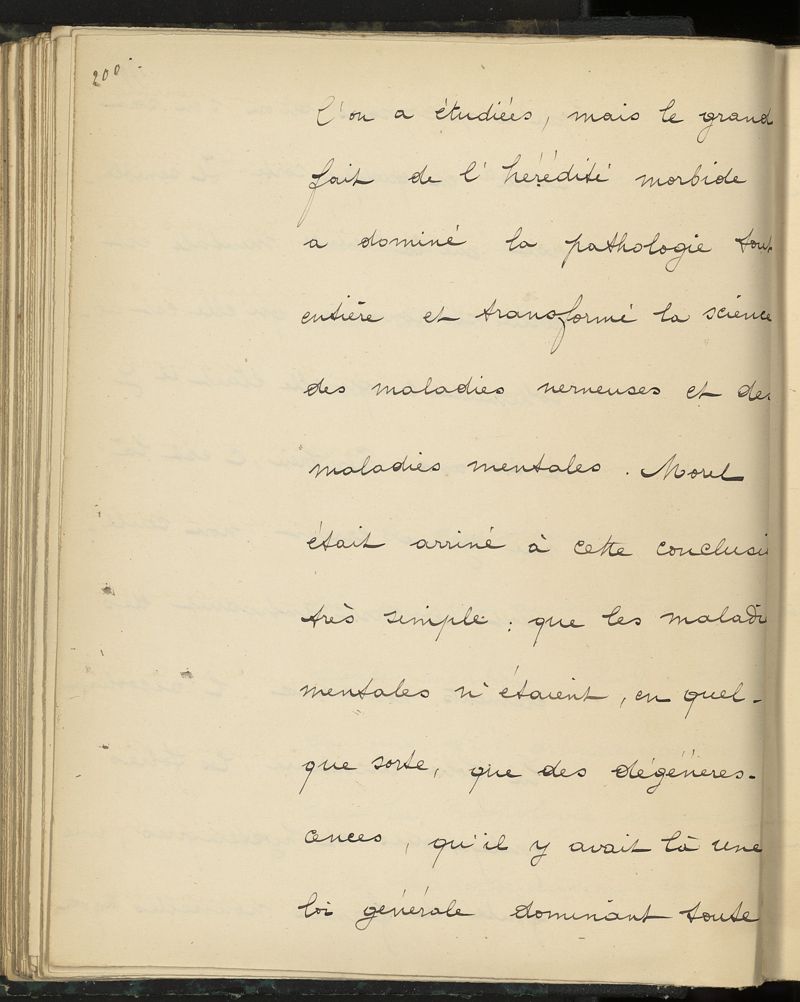 200
l'on a étudiées, mais le grand
fait de l'hérédité morbide
a dominé la pathologie tout
entière et transformé la science
des maladies nerveuses et des
maladies mentales. Morel
était arrivé à cette conclusi
très simple : que les maladi
mentales n'étaient, en quel-
que sorte, que des dégéneres-
cences, qu'il y avait là une
loi générale dominant toute